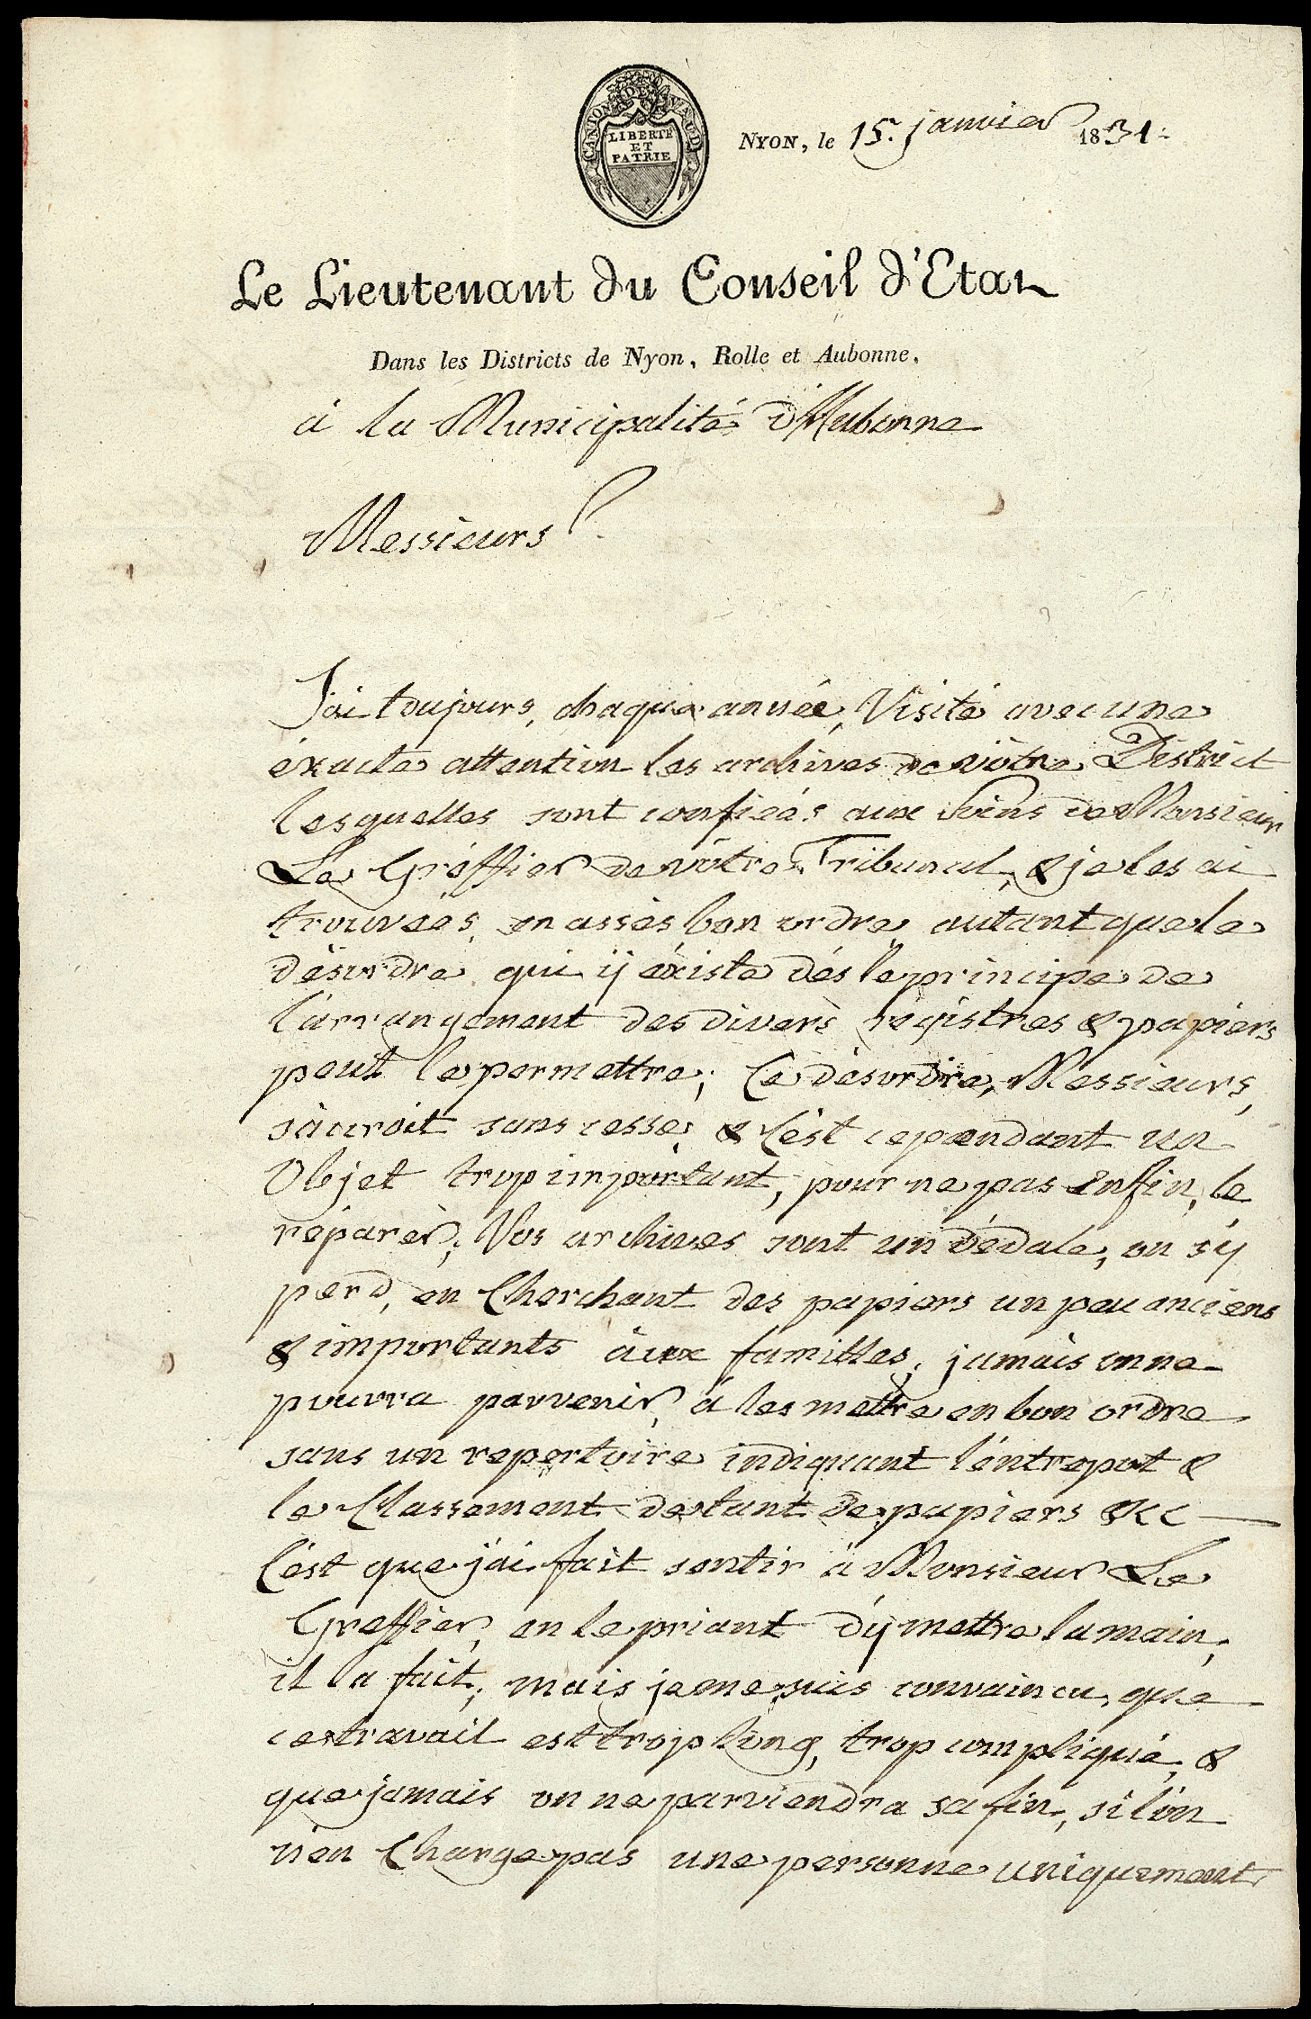 CANTON DE VAUD
LIBERTÉ
ET
PATRIE
NYON, le 15. janvier 1831.
Le Lieutenant du Conseil d'Etat
Dans les Districts de Nyon, Rolle et Aubonne,
à la Municipalité d'Aubonne
Messieurs
J'ai toujours, chaque année, Visité avec une
éxacte attention les archives de vôtre District
lesquelles sont confiées aux Soins de Monsieur
Le Gréffier de vôtre Tribunal, & je les ai
trouvées, en assès bon ordre autant que le
désordre qui ÿ éxiste dés le principe de
l'arrangement des divers régistres & papiers
peut le permettre; Ce désordre, Messieurs,
s'acroit sans cesse, & C'est cependant un
Objet trop important, pour ne pas enfin, le
réparer; Vos archives sont un dédale, on s'y
perd, en Cherchant des papiers un peu anciens
& importants àux familles; jamais on ne
pourra parvenir à les mettre en bon ordre
sans un repertoire indiquant l'éntrepot &
le Classement de tant de papiers &c
C'est que j'ai fait sentir à Monsieur Le
Greffier, en le priant d'ÿ mettre la main,
il la fait; mais je me suis convaincu, que
ce travail est trop long, trop compliqué, &
que jamais on ne parviendra sa fin, si l'on
n'en Charge pas une personne uniquement